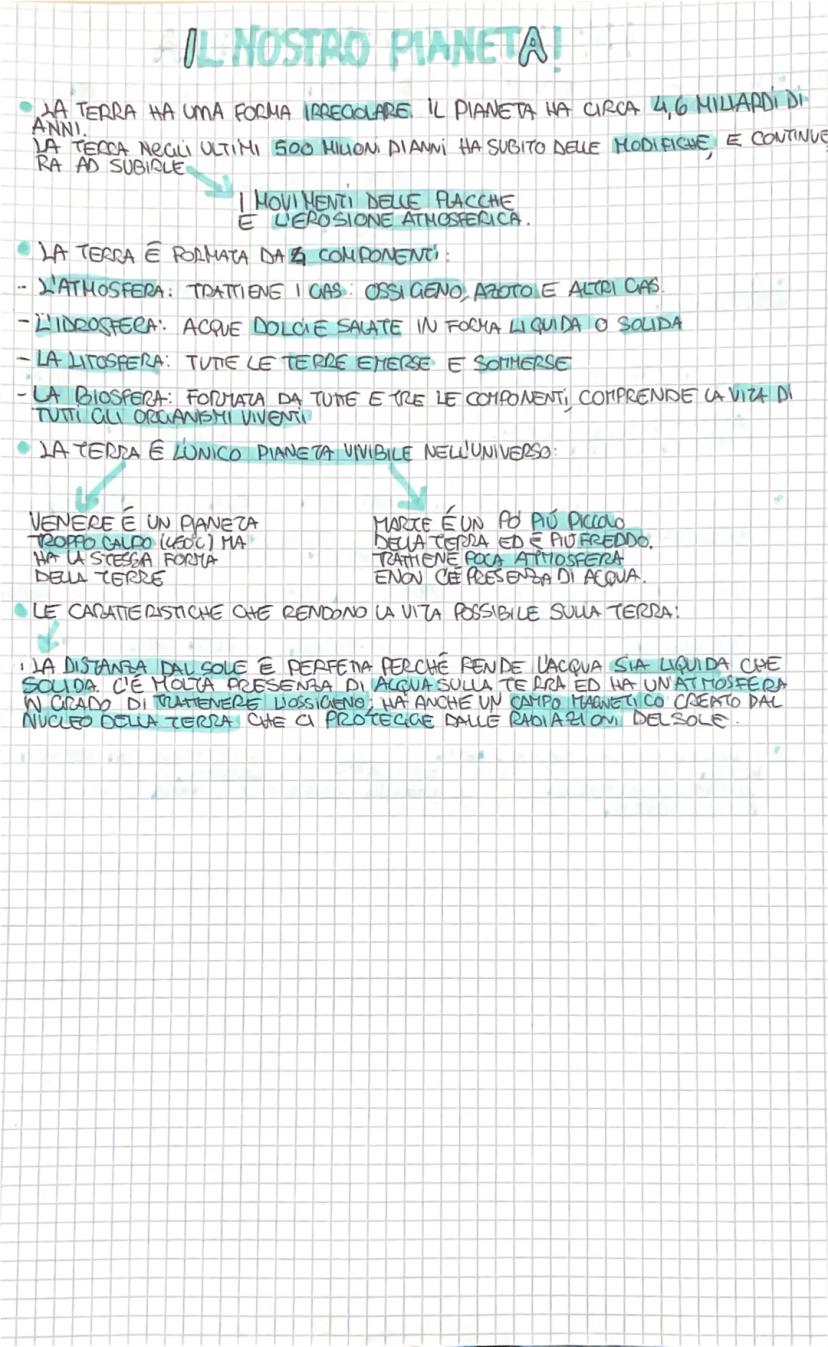 IL NOSTRO PIANETA!
• LA TERRA HA UNA FORMA IRREGOLARE. IL PIANETA HA CIRCA 4,6 MILIARDI DI
ANNI.
LA TERRA NEGLI ULTIMI 500 MILIONI DI ANNI HA SUBITO DELLE MODIFICHE, E CONTINUE
RA AD SUBIRLE
I MOVIMENTI DELLE PLACCHE
E L'EROSIONE ATMOSFERICA.
• LA TERRA È FORMATA DA COMPONENTI:
- L'ATMOSFERA: TRATTIENE I GAS: OSSIGENO, AZOTO E ALTRI GAS.
- L'IDROSFERA: ACQUE DOLCI E SALATE IN FORMA LIQUIDA O SOLIDA
- LA LITOSFERA: TUTTE LE TERRE EMERSE E SOMMERSE
- LA BIOSFERA: FORMATA DA TUTTE E TRE LE COMPONENTI, COMPRENDE LA VITA DI
TUTTI GLI ORGANISMI VIVENTI
• LA TERRA È L'UNICO PIANETA VIVIBILE NELL'UNIVERSO:
VENERE È UN PIANETA
TROPPO CALDO MA
HA LA STESSA FORMA
DELLA TERRE
MARTE È UN PO' PIÙ PICCOLO
DELLA TERRA ED È PIÙ FREDDO.
TRATTIENE POCA ATMOSFERA
E NON C'È PRESENZA DI ACQUA.
• LE CARATTERISTICHE CHE RENDONO LA VITA POSSIBILE SULLA TERRA:
LA DISTANZA DAL SOLE È PERFETTA PERCHÉ RENDE L'ACQUA SIA LIQUIDA CHE
SOLIDA. C'È MOLTA PRESENZA DI ACQUA SULLA TERRA ED HA UN'ATMOSFERA
IN GRADO DI TRATTENERE L'OSSIGENO, HA ANCHE UN CAMPO MAGNETICO CREATO DAL
NUCLEO DELLA TERRA CHE CI PROTEGGE DALLE RADIAZIONI DEL SOLE.